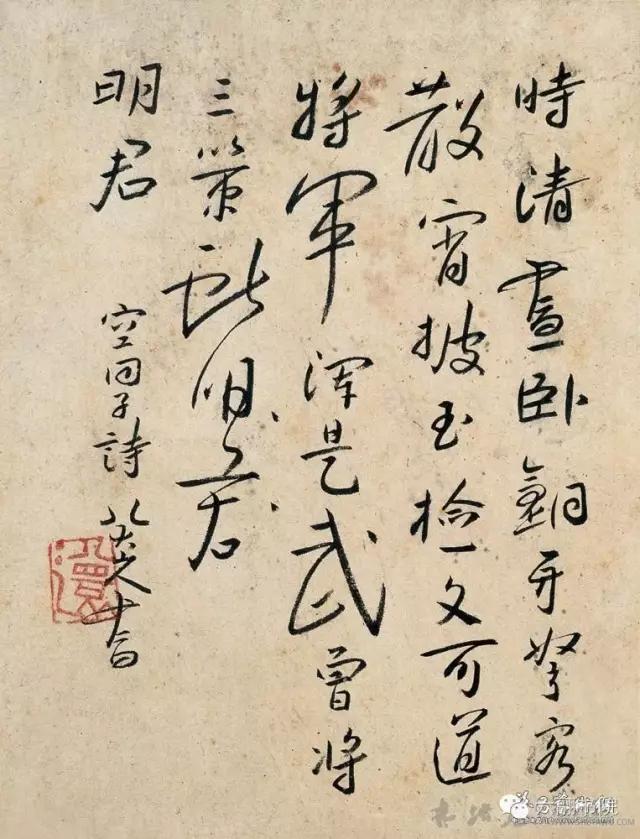 時清晝臥銅牙弩客
散宵披玉檢文可道
將軍渾是武曾將
三策獻明君
明君
空同子詩 八大山人書